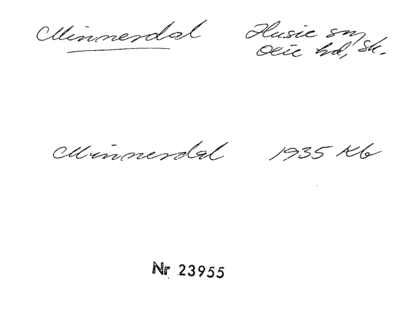 Minnerdal Husie sn,
Oxie hd, Sk.
Minnerdal 1935 Kb
Nr 23955